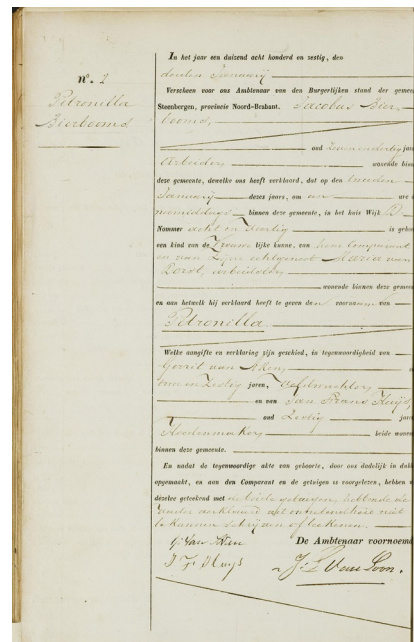 nº. 2
Petronilla
Bierbooms
In het jaar een duizend acht honderd en zestig, den
derden Januarij
Verscheen voor ons Ambtenaar van den Burgerlijken stand der gemeen
Steenbergen, provincie Noord-Brabant. Jacobus Bier
booms,
oud Zevenendertig jare
Arbeider, wonende binn
deze gemeente, dewelke ons heeft verklaard, dat op den tweeden
Januarij dezes jaars, om een ure
namiddags binnen deze gemeente, in het huis Wijk D
Nommer acht en veertig is gebor
een kind van de Vrouwelijke kunne, van hem Comparant
en van Zijne echtgenoot Maria van
Dorst, arbeidster,
wonende binnen deze gemeen
en aan hetwelk hij verklaard heeft te geven den voornaam van
Petronilla
Welke aangifte en verklaring zijn geschied, in tegenwoordigheid van
Gerrit van Aken, oud
en Zestig jaren, veldwachter,
en van Jan Frans Huijs,
oud Zestig jaren
beide wonen
binnen deze gemeente.
En nadat de tegenwoordige akte van geboorte, door ons dadelijk in dubb
opgemaakt, en aan den Comparant en de getuigen is voorgelezen, hebben w
dezelve geteekend met de beide getuigen, hebbende de
vader verklaard niet
te kunnen schrijven of teekenen.
G. van Aken
J F Huys
De Ambtenaar voornoemd
J. L. Van Loon.